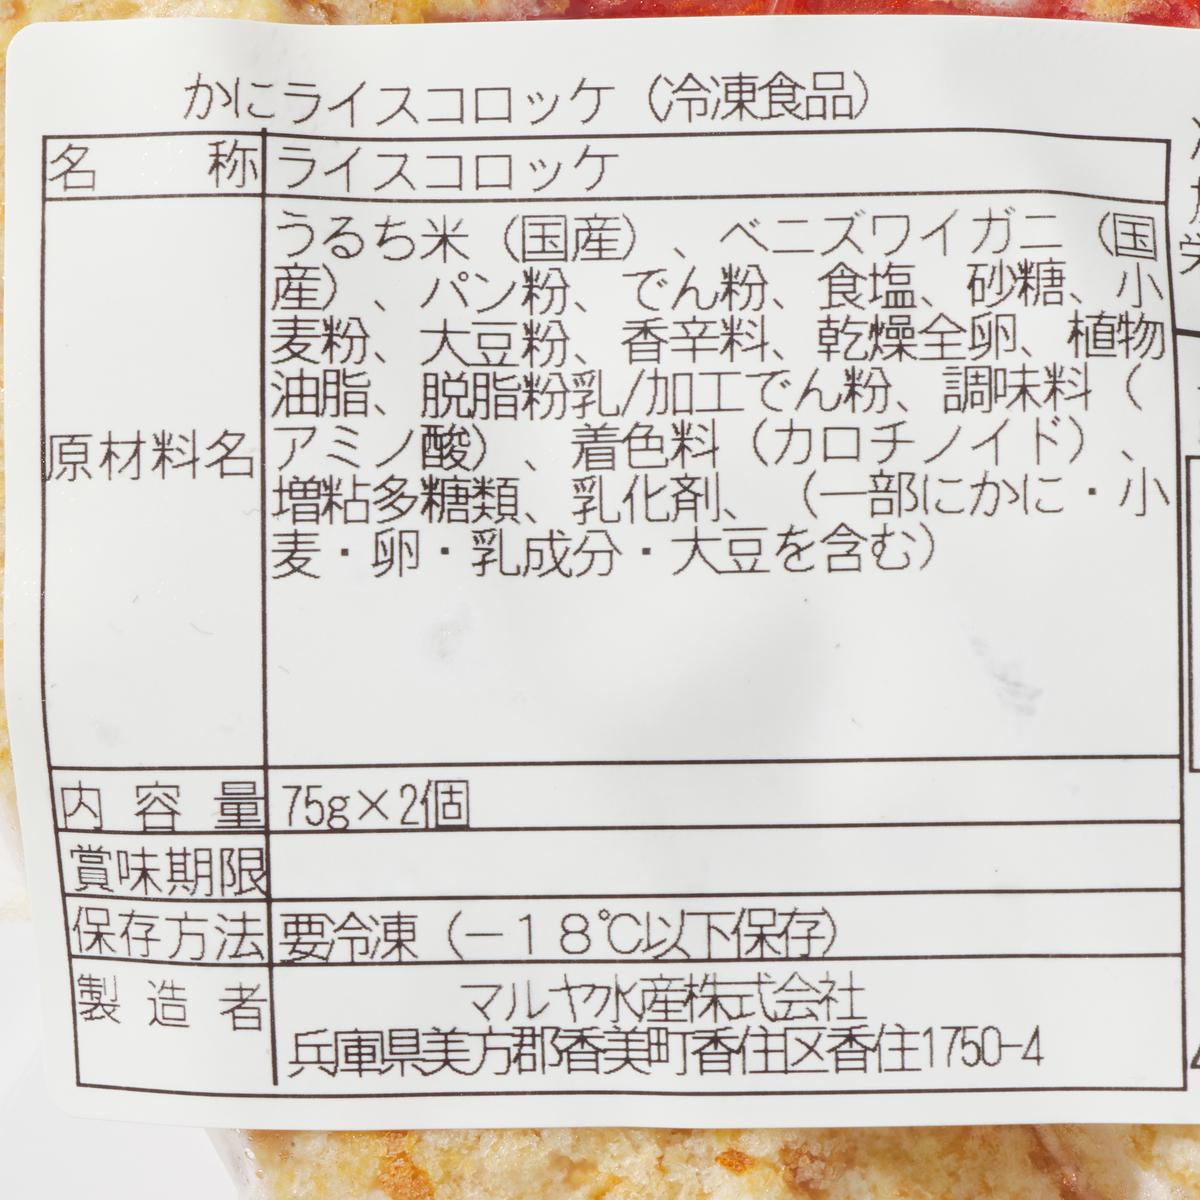 かにライスコロッケ（冷凍食品）
名称 ライスコロッケ
原材料名 うるち米（国産）、ベニズワイガニ（国
産）、パン粉、でん粉、食塩、砂糖、小
麦粉、大豆粉、香辛料、乾燥全卵、植物
油脂、脱脂粉乳/加工でん粉、調味料（
アミノ酸）、着色料（カロチノイド）、
増粘多糖類、乳化剤、（一部にかに・小
麦・卵・乳成分・大豆を含む）
内容量 75g×2個
賞味期限
保存方法 要冷凍（－１８℃以下保存）
製造者 マルヤ水産株式会社
兵庫県美方郡香美町香住区香住1750-4